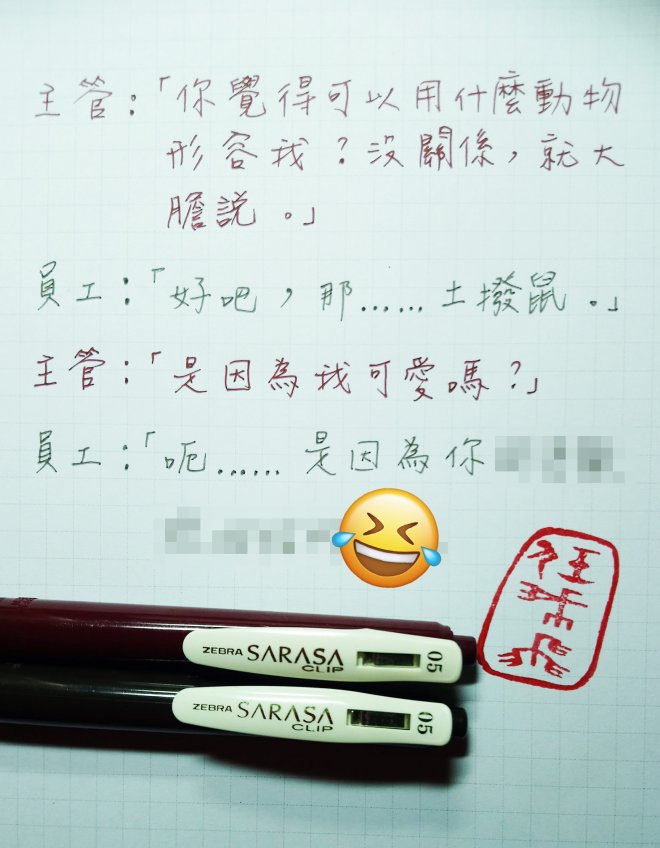 主管：「你覺得可以用什麼動物
形容我？沒關係，就大
膽說。」
員工：「好吧，那……土撥鼠。」
主管：「是因為我可愛嗎？」
員工：「呃……是因為你
ZEBRA SARASA CLIP 05
ZEBRA SARASA CLIP 05